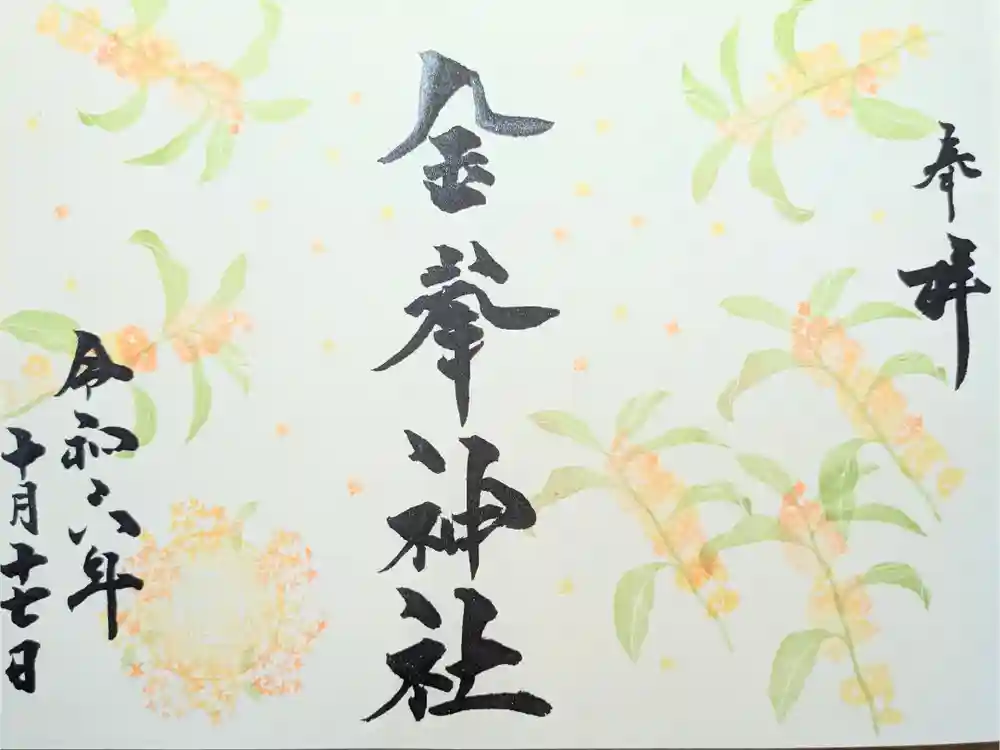 奉拝
金峯神社
令和六年
十月十七日